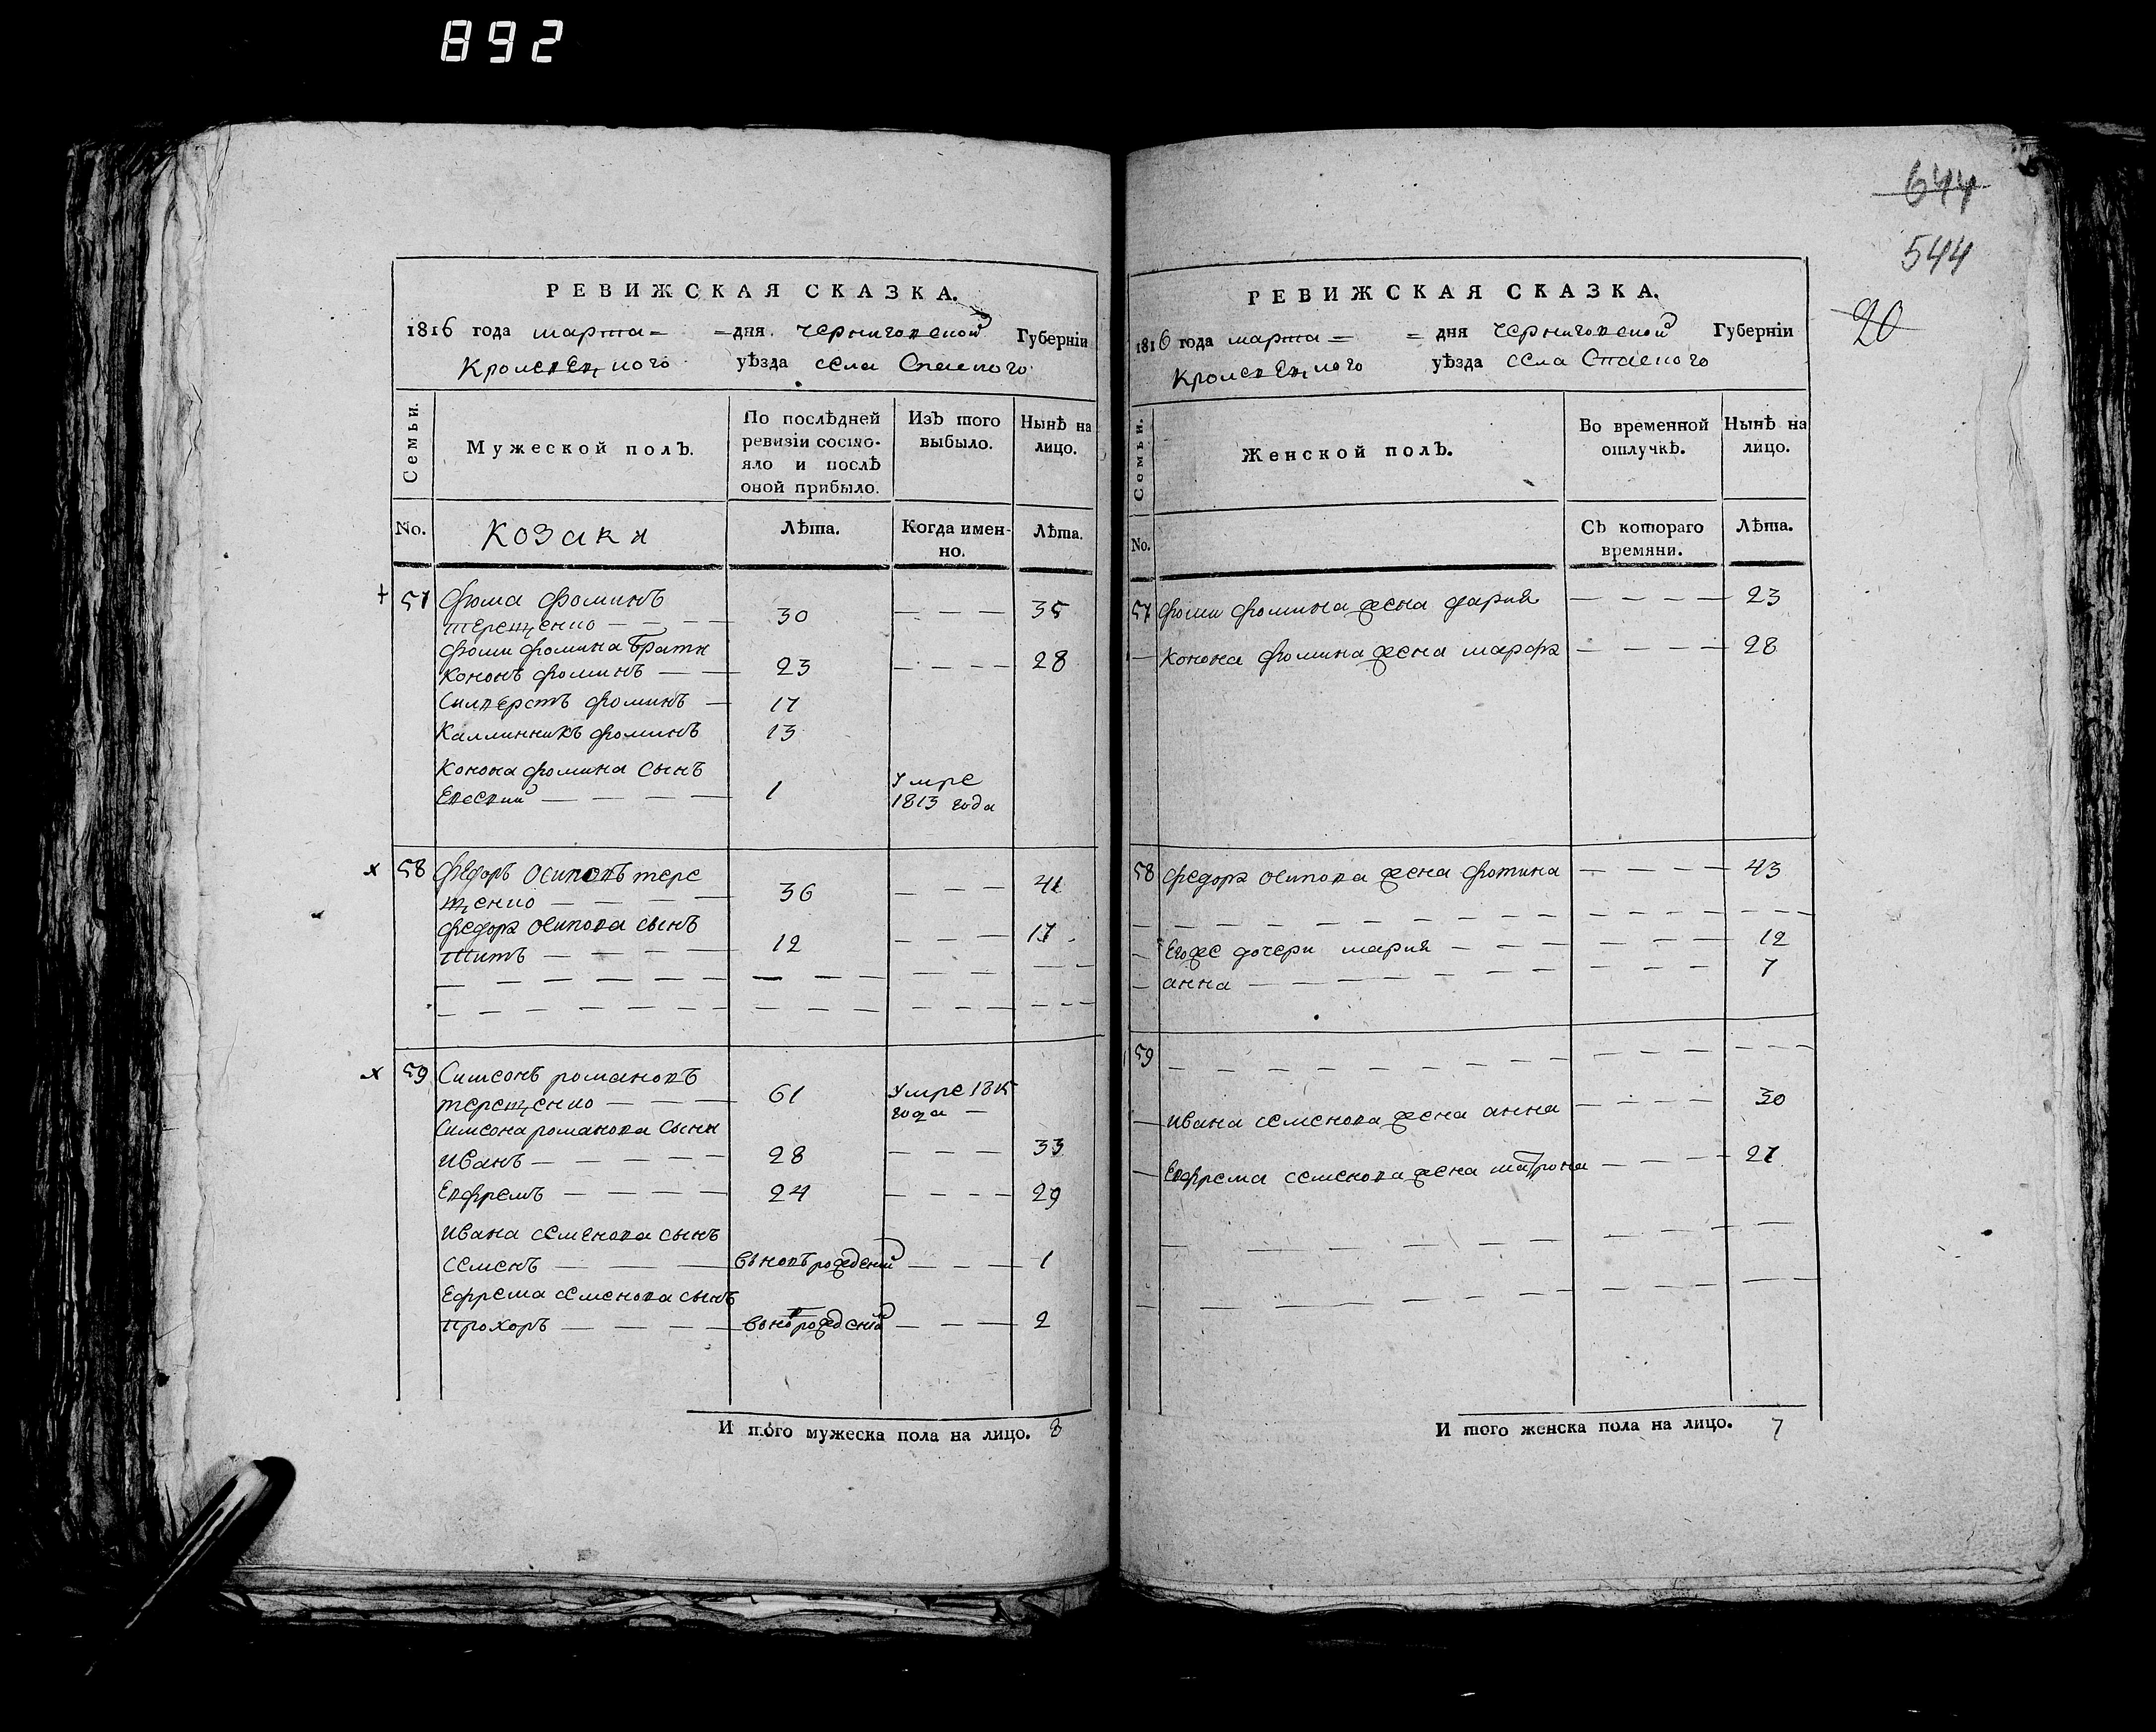 892
РЕВИЖСКАЯ СКАЗКА.
1816 года марта = = дня черниговской Губерніи
Кролевецкого уѣзда села Спаского
Семьи.
Мужеской полъ.
По послѣдней
ревизіи состо-
яло и послѣ
оной прибыло.
Изъ того
выбыло.
Нынѣ на
лицо.
No.
козаки
Лѣта.
Когда имен-
но.
Лѣта.
57 фома фоминъ
терещенко — 30 — 35
фоми фомина брати
кононъ фоминъ — 23 — 28
Силверстъ фоминъ — 17
Каллинникъ фоминъ 13
Конона фомина сынъ
Евсевий — 1 умре
1813 года
х 58 федоръ осиповъ тере
щенко — 36 — 41
федора осипова сынъ
титъ — 12 — 17
х 59 Симеонъ романовъ
терещенко — 61 умре 1815
года —
Симеона романова сыни
иванъ — 28 — 33
Евфремъ — 24 — 29
ивана семенова сынъ
семенъ — вновърожденній — 1
Ефрема семенова сынъ
прохоръ — вновърожденній — 2
И того мужеска пола на лицо. 8
644
544
20
РЕВИЖСКАЯ СКАЗКА.
1816 года марта = = дня черниговской Губерніи
Кролевецкого уѣзда села Спаского
Семьи.
Женской полъ.
Во временной
отлучкѣ.
Нынѣ на
лицо.
No.
Съ котораго
времяни.
Лѣта.
57 фоми фомина жена дария — 23
— конона фомина жена марфа — 28
58 федора осипова жена фотина — 43
— Егоже дочери мария — 12
— анна — 7
59
— ивана семенова жена анна — 30
— Евфрема семенова жена матрона — 27
И того женска пола на лицо. 7